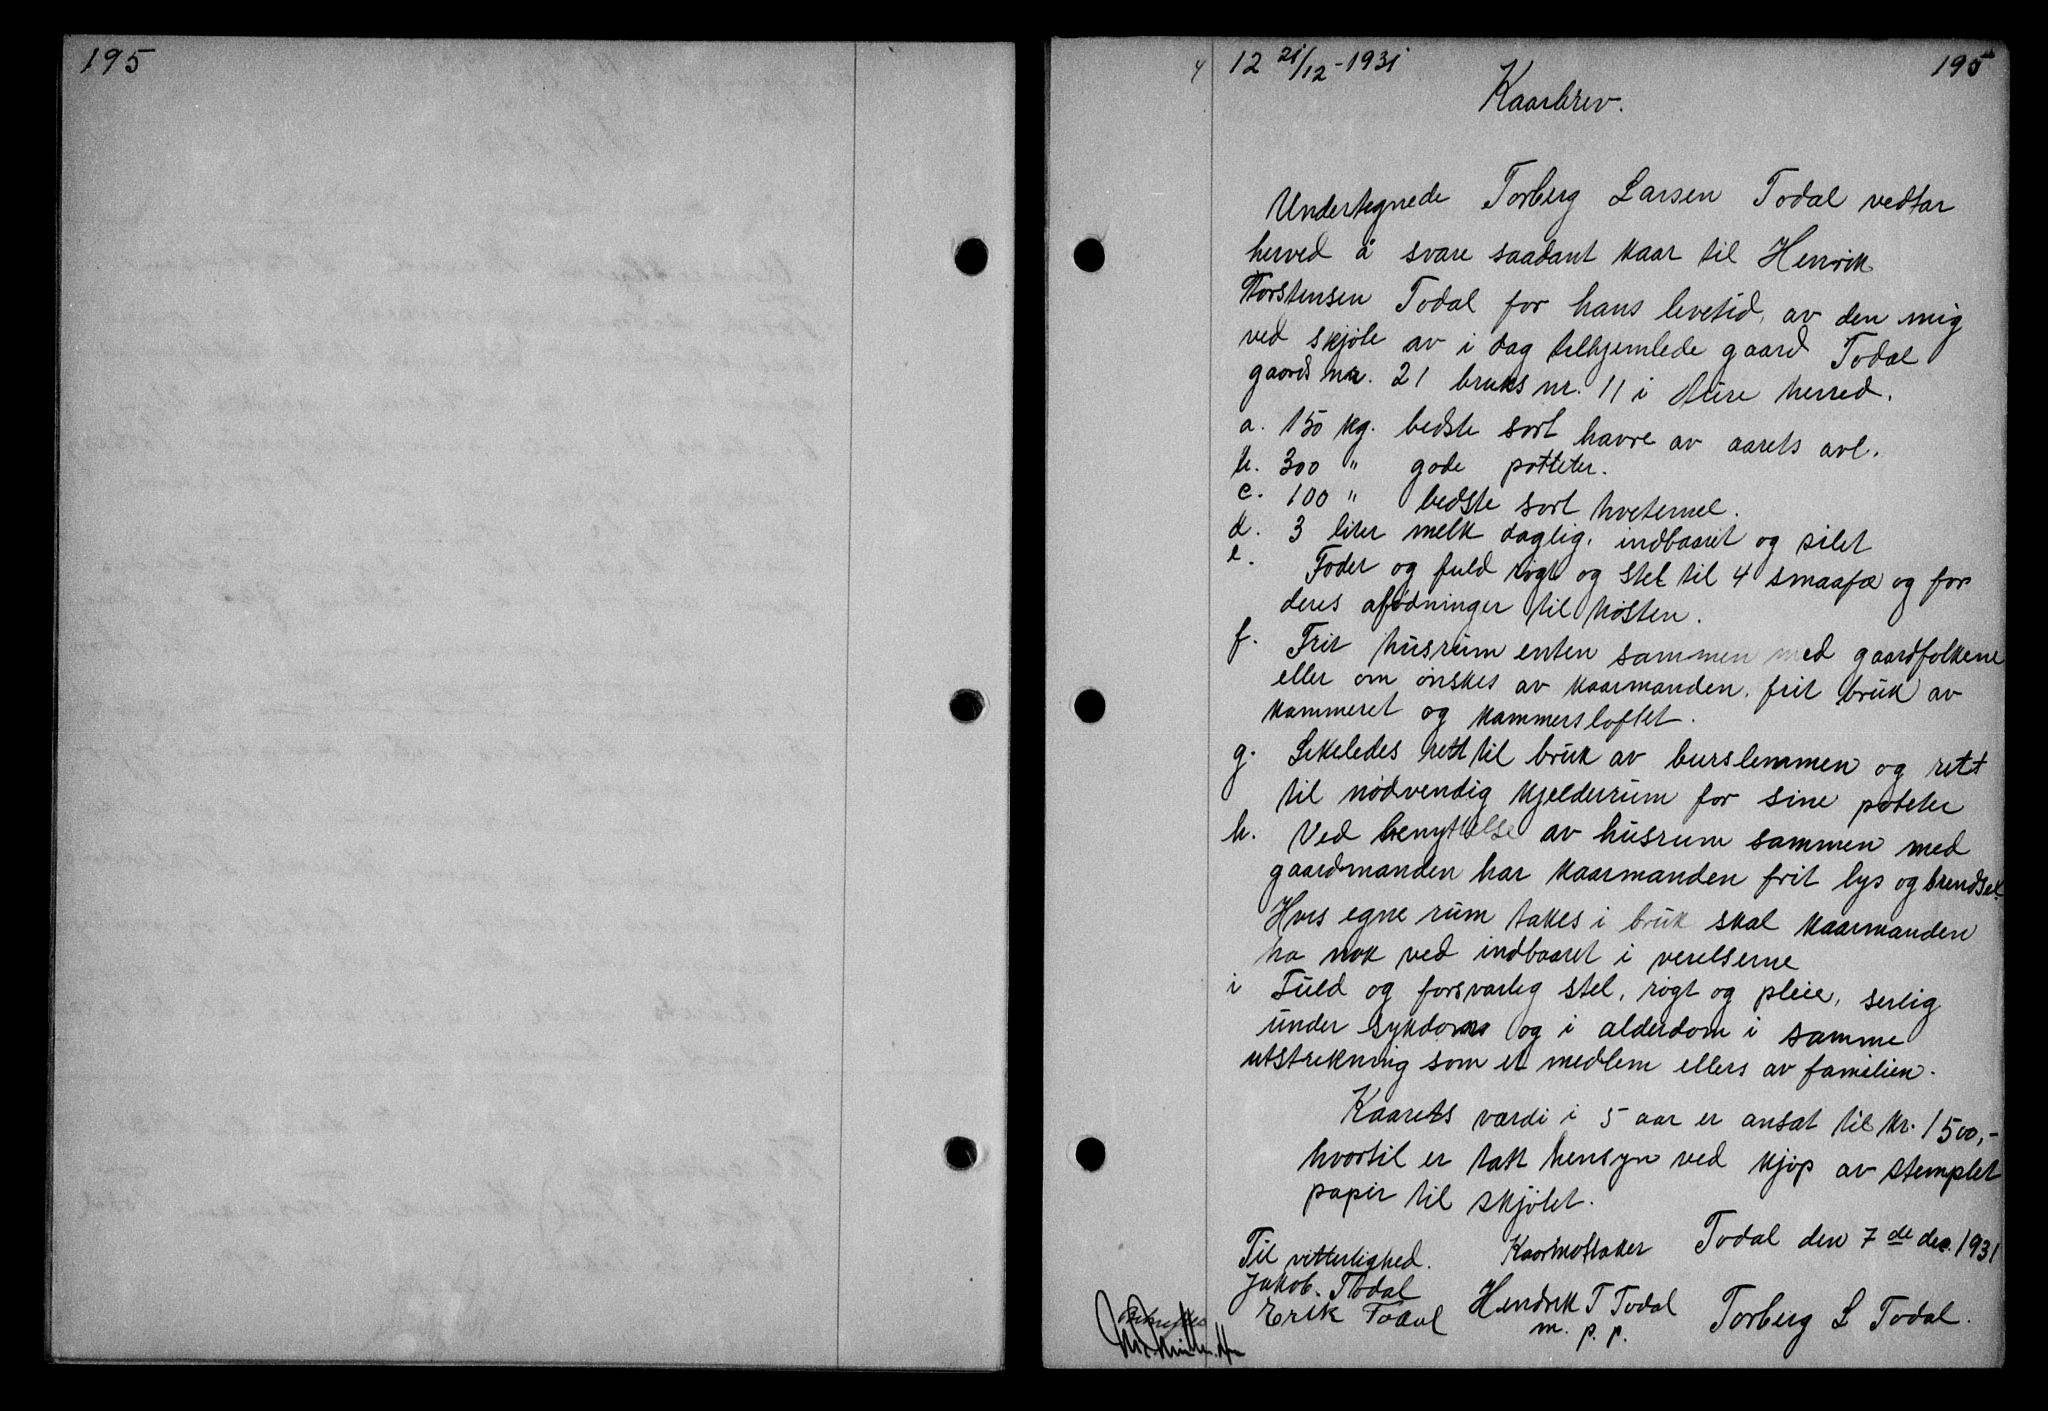 195
12 21/12-1931
195
Kaarbrev.
Undertegnede Torberg Larsen Todal vedtar
herved å svare saadant kaar til Henrik
Torstensen Todal for hans levetid, av den mig
ved skjøte av i dag tilhjemlede gaard Todal
gaards nr. 21 bruks nr. 11 i Aure herred.
a. 150 kg. bedste sort havre av aarets avl.
b. 300 " gode potteter.
c. 100 " bedste sort hvetemel.
d. 3 liter melk daglig, indbaaret og silet
e. Foder og fuld røgt og stel til 4 smaafæ og for
deres afødninger til høsten.
f. Frit husrum enten sammen med gaardfolkene
eller om ønskes av kaarmanden, frit bruk av
kammeret og kammersloftet.
g. Likeledes rett til bruk av burslemmen og rett
til nødvendig kjelderrum for sine poteter
h. Ved benyttelse av husrum sammen med
gaardmanden har kaarmanden frit lys og brendsel.
Hvis egne rum takes i bruk skal kaarmanden
ha nok ved indbaaret i verelserne
i Fuld og forsvarlig stel, røgt og pleie, serlig
under sykdom og i alderdom i samme
utstrekning som et medlem ellers av familien.
Kaarets værdi i 5 aar er ansat til kr. 1500,-
hvortil er tatt hensyn ved kjøp av stemplet
papir til skjøtet.
Todal den 7de dec. 1931
Til vitterlighed. Kaarmottaker
Jakob. Todal
Erik Todal Hendrik T Todal Torberg L Todal.
m. p. p.